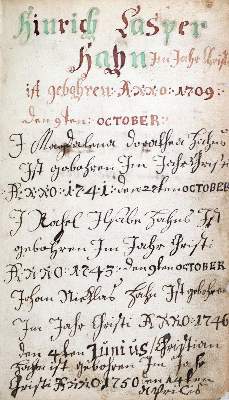 Hinrich Casper
Hahn Im Jahr Christi
ist gebohren: AXXO: 1709:
den 9ten: OCTOBER:
J Magdalena dorothea Hahns
Ist gebohren Im Jahr Christi
AXXO: 1741: den 22ten OCTOBER
J Rahel Ilsabe Hahns Ist
gebohren Im Jahr Christi:
AXXO: 1743: den 9ten OCTOBER
Johan Nicklas Hahn Ist gebohren
Im Jahr Christi AXXO: 1746
den 4ten Junius Christian
Hahn ist gebohren Im Jahr
Christi AXXO: 1750 den 4ten
Aprilis